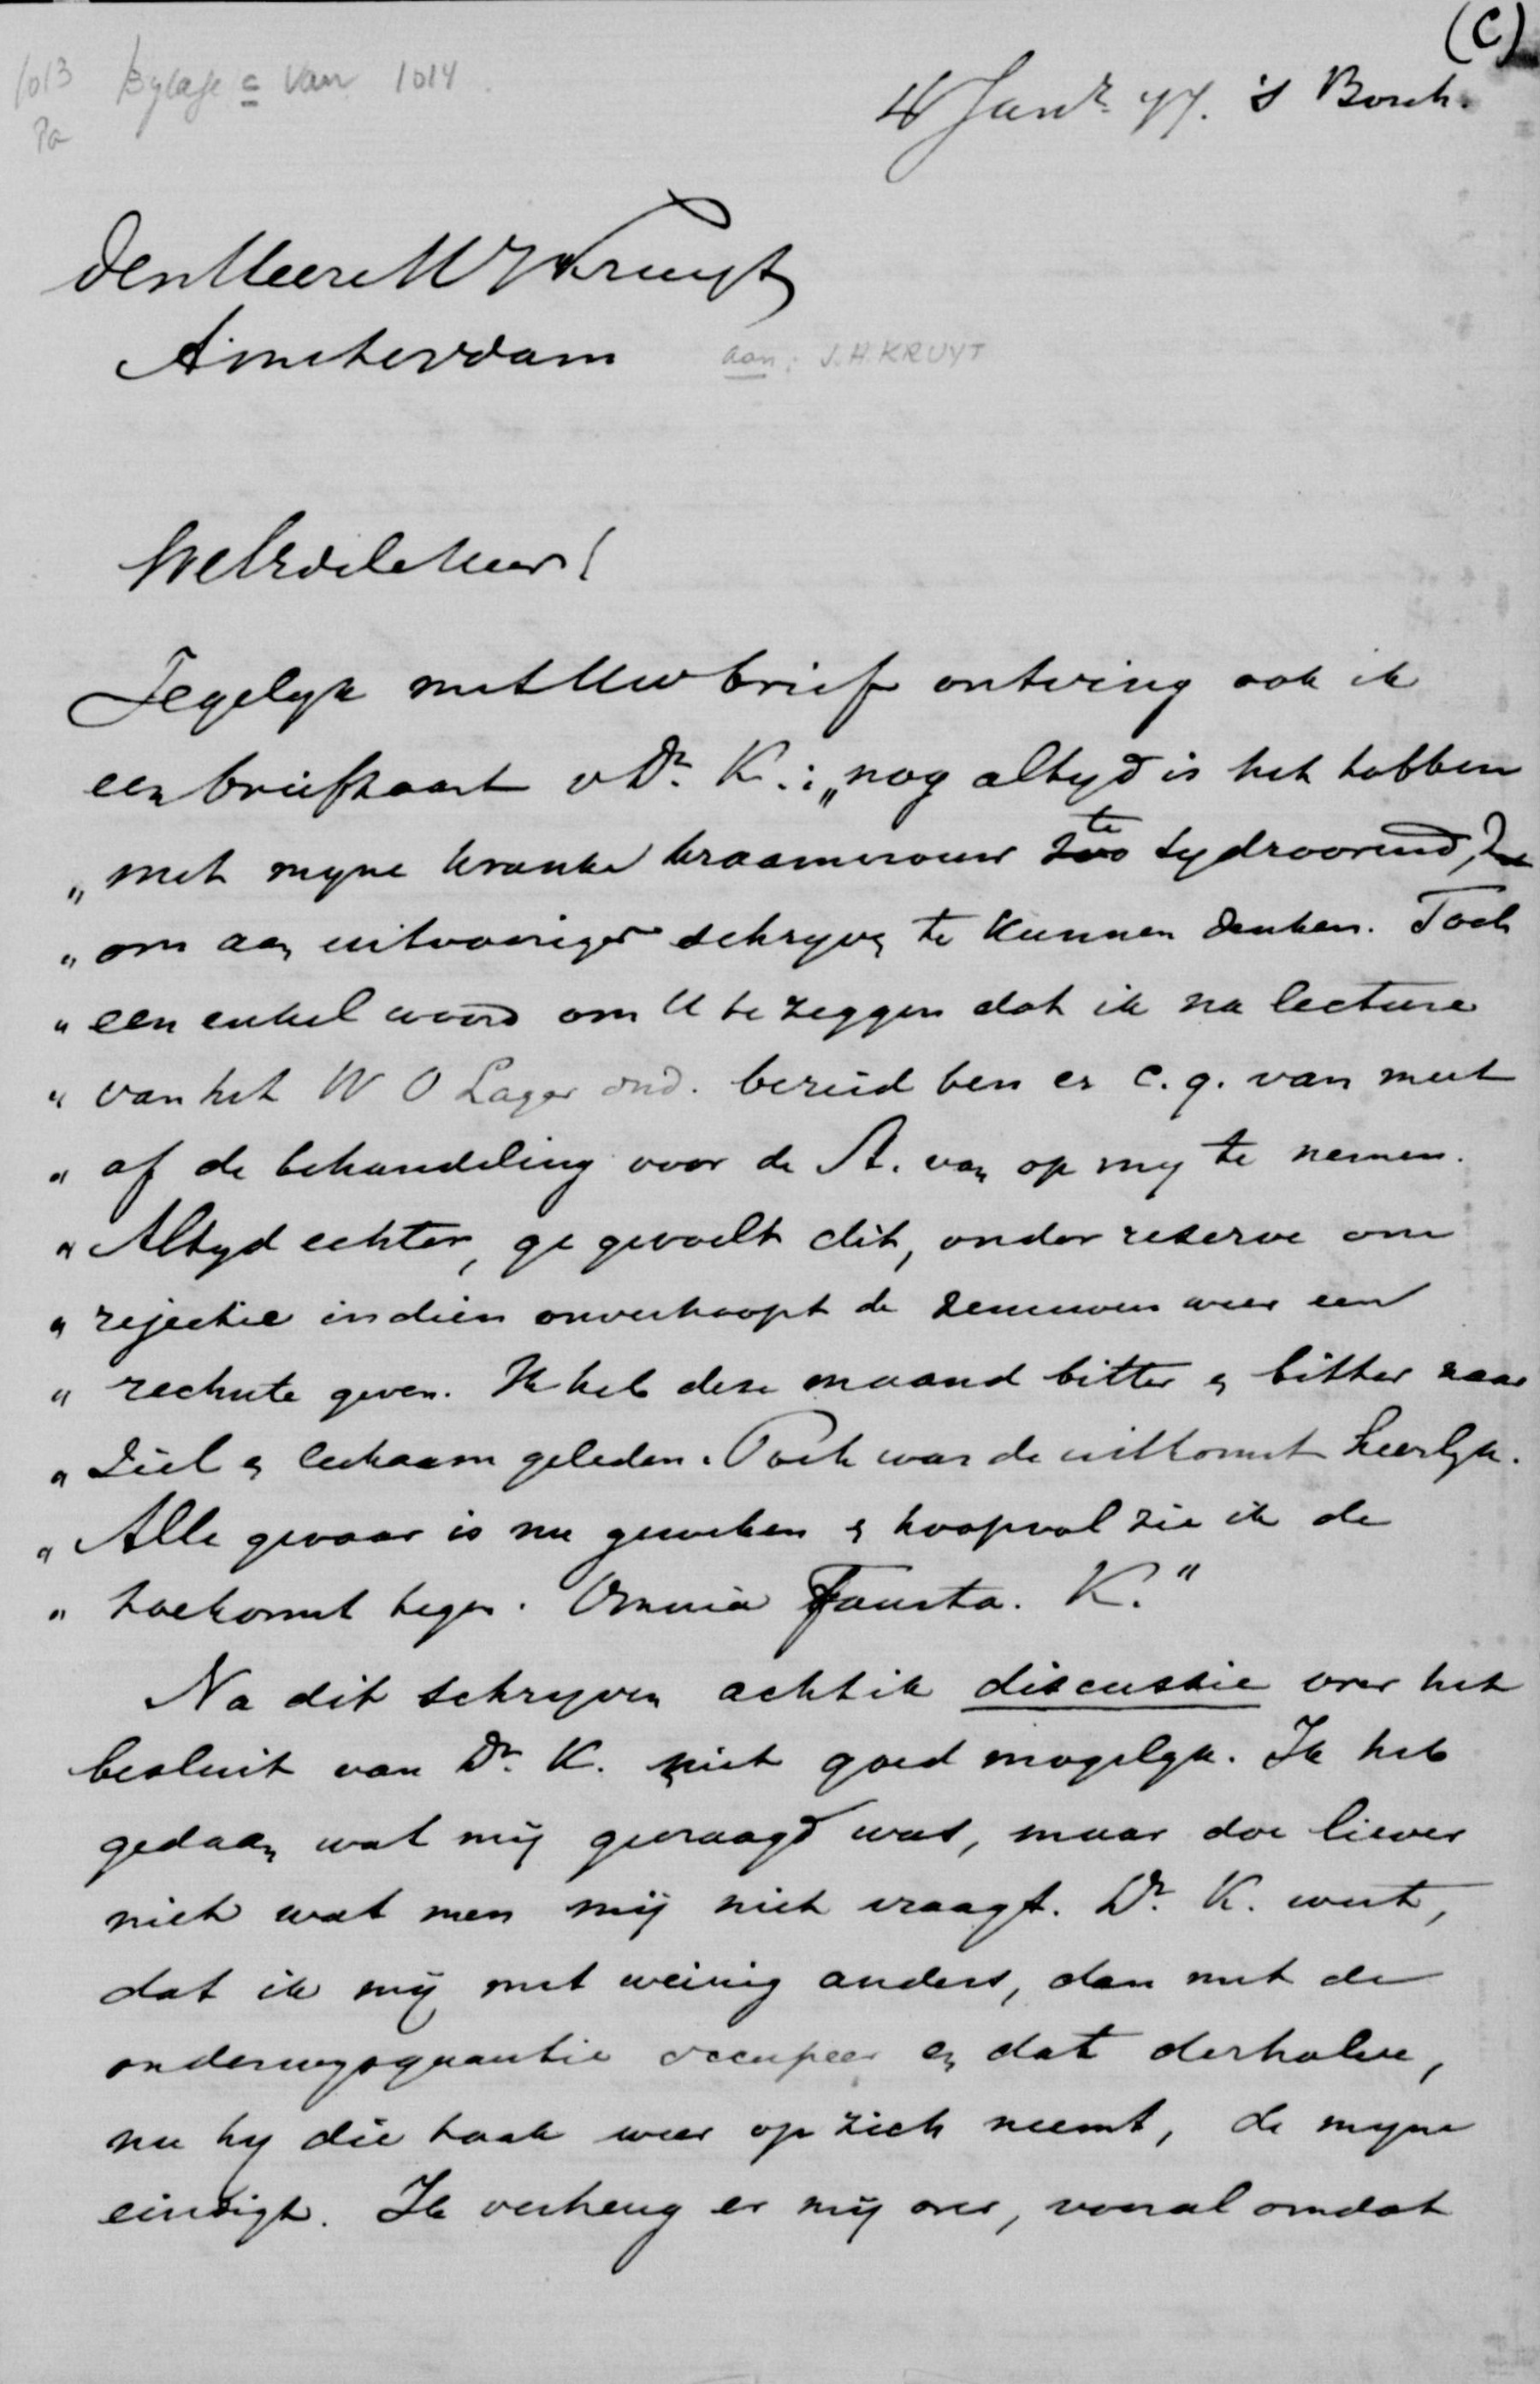 (C)
1013 Bylage c van 1014.
Pa
4 Janr 77. 's Bosch.
Den Heere M J H Kruyt
Amsterdam
aan: J.H. KRUYT
WelEdele Heer!
Tegelyk met Uw brief ontving ook ik
een briefkaart v Dr. K.: „nog altyd is het tobben
„ met myne kranke kraamvrouw te tydroovend,
„ om aan uitvoeriger schryven te kunnen denken. Toch
„ een enkel woord om U te zeggen dat ik na lecture
„ van het W O Lager ond. bereid ben er c.q. van meet
„ af de behandeling voor de St. van op my te nemen.
„ Altyd echter, ge gevoelt dit, onder reserve om
„ rejectie indien onverhoopt de zenuwen weer een
„ rechute geven. Ik heb deze maand bitter en bitter naar
„ ziel en lichaam geleden. Toch was de uitkomst heerlyk.
„ Alle gevaar is nu geweken en hoopvol zie ik de
„ toekomst tegen. Omnia Fausta. K."
Na dit schryven acht ik discussie over het
besluit van Dr. K. niet goed mogelyk. Ik heb
gedaan wat mij gevraagd was, maar doe liever
niet wat men mij niet vraagt. Dr. K. weet,
dat ik mij met weinig anders, dan met de
onderwysquaestie occupeer en dat derhalve,
nu hy die taak weer op zich neemt, de myne
eindigt. Ik verheug er mij over, vooral omdat